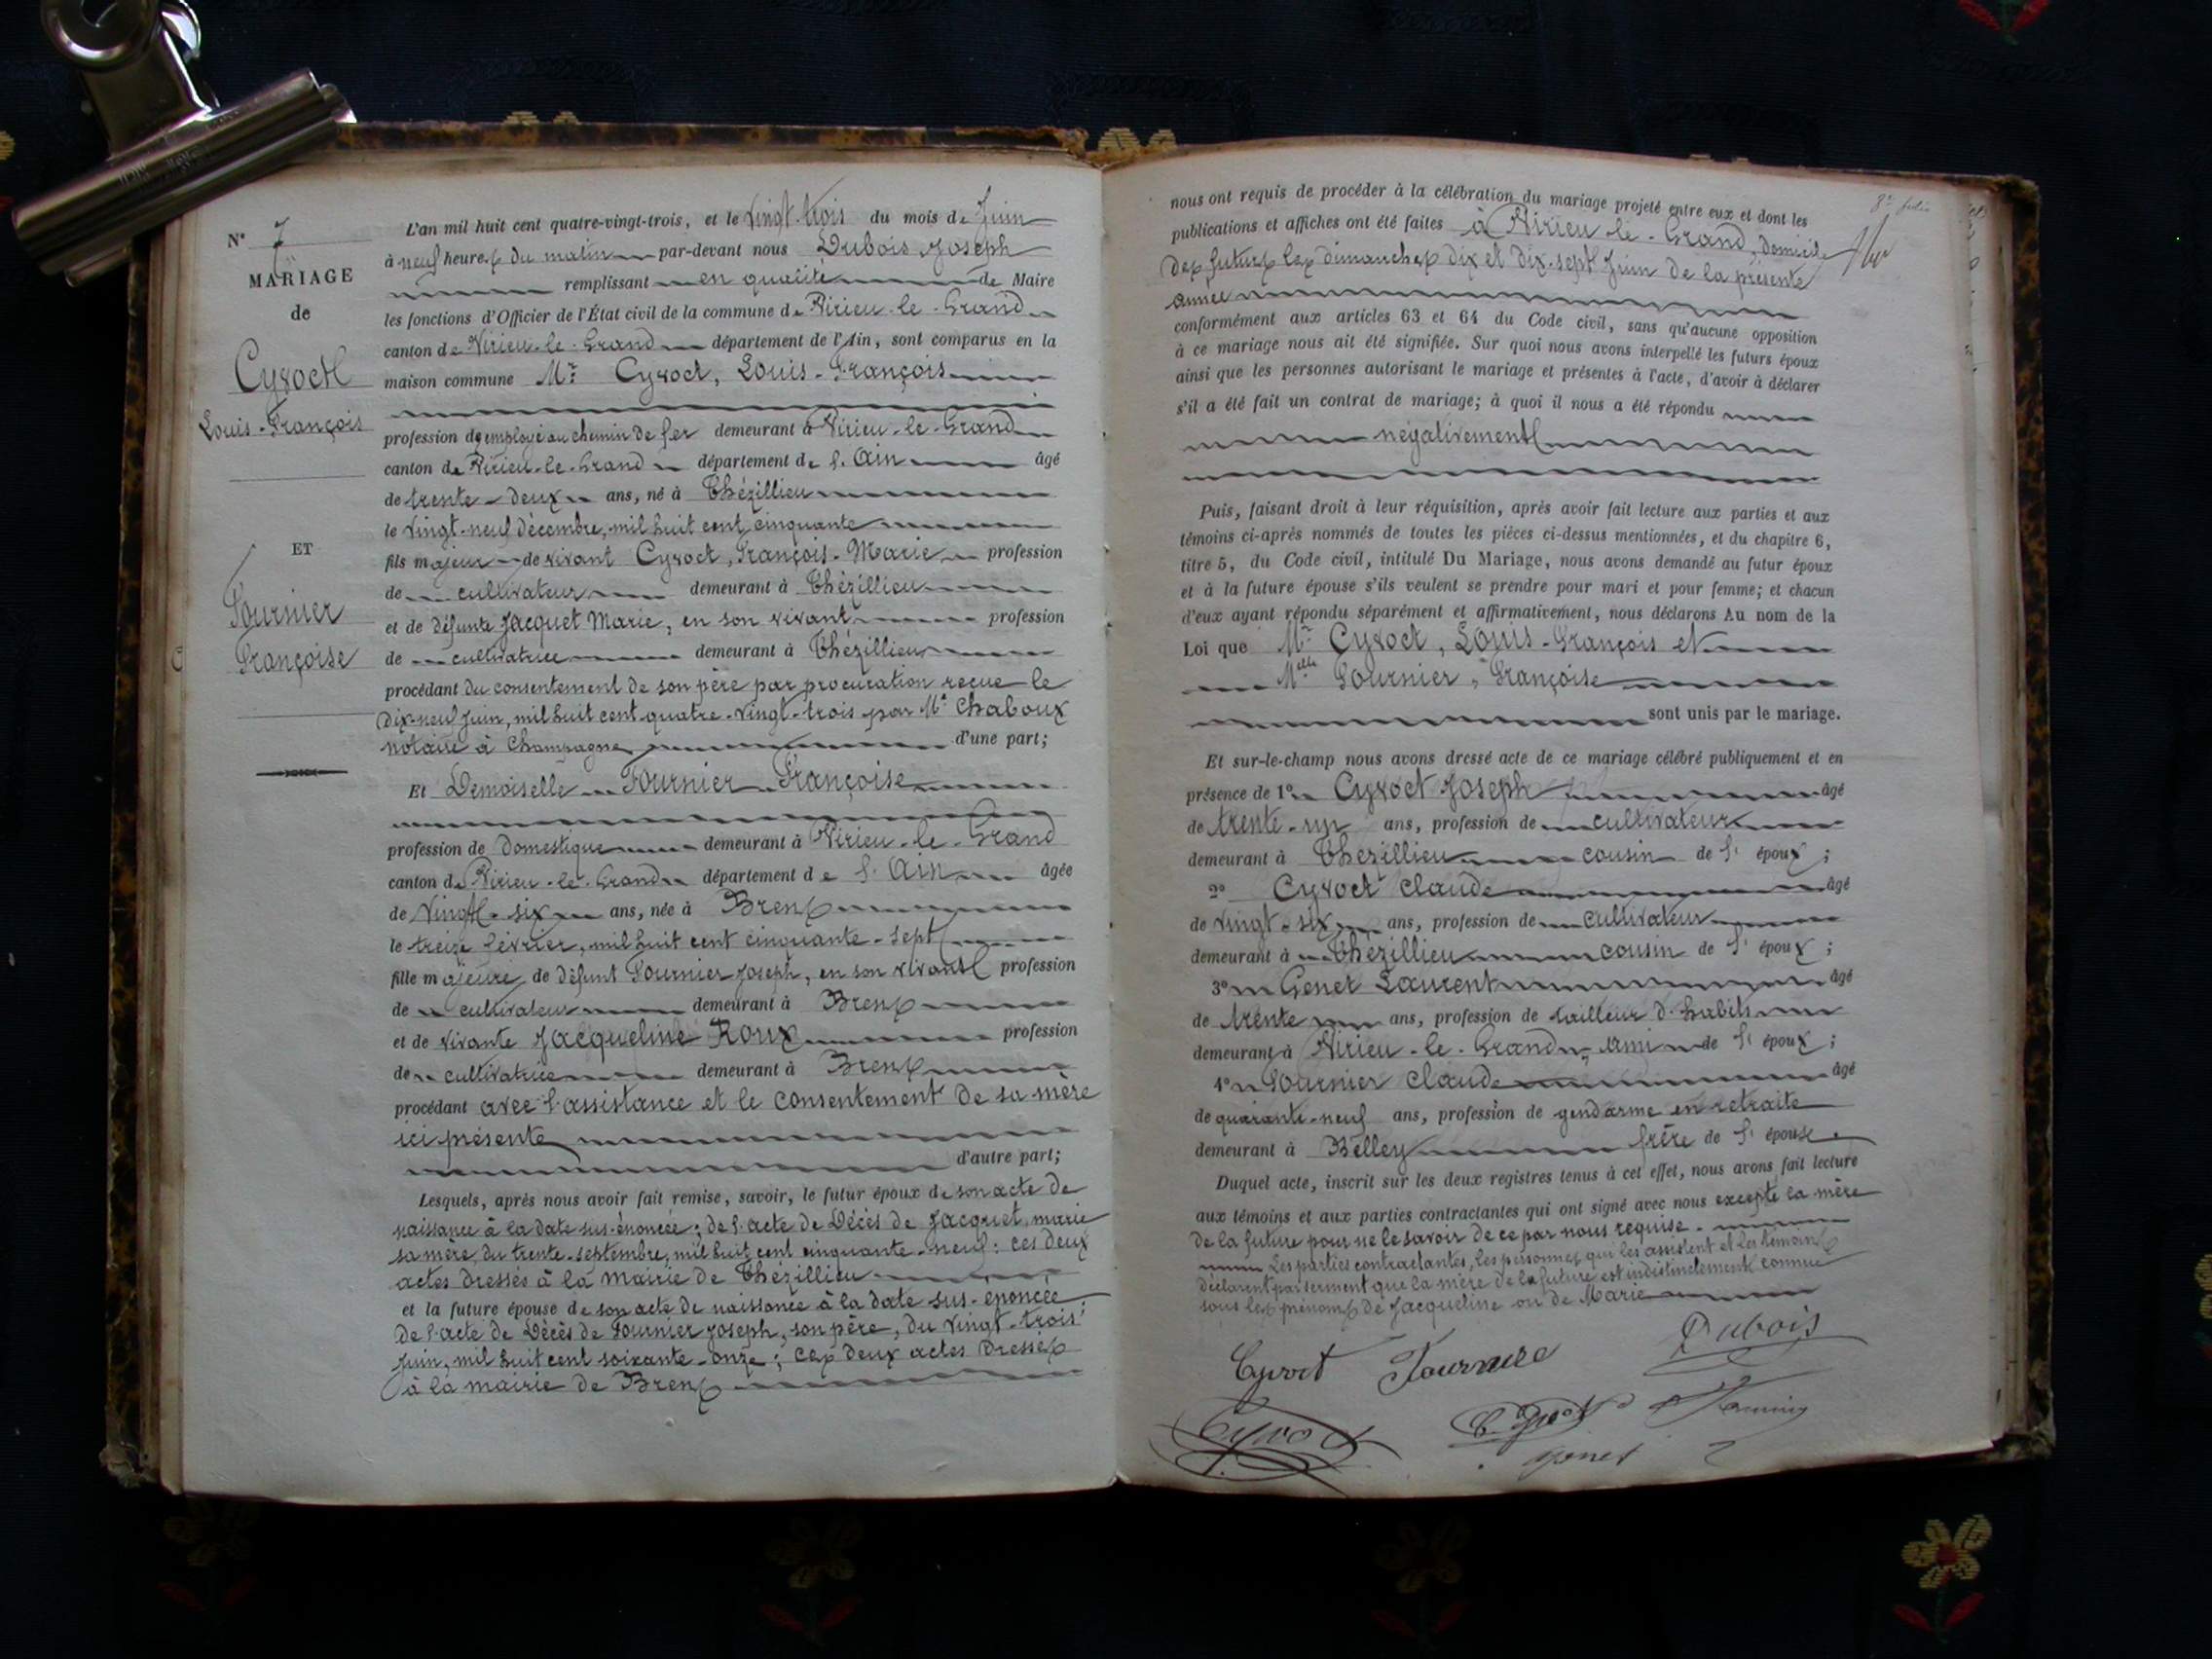 N° 7
MARIAGE
de
Cyvoct
Louis-François
ET
Fournier
Françoise
L'an mil huit cent quatre-vingt-trois, et le vingt-trois du mois de Juin
à neuf heures du matin par-devant nous Dubois Joseph
remplissant en qualité de Maire
les fonctions d'Officier de l'État civil de la commune de Virieu-le-Grand
canton de Virieu-le-Grand département de l'Ain, sont comparus en la
maison commune Mr Cyvoct, Louis-François
profession d'employé au chemin de fer demeurant à Virieu-le-Grand
canton de Virieu-le-Grand département de l'Ain âgé
de trente-deux ans, né à Thézillieu
le vingt-neuf décembre, mil huit cent cinquante
fils majeur de vivant Cyvoct, François-Marie profession
de cultivateur demeurant à Thézillieu
et de défunte Jacquet Marie, en son vivant profession
de cultivatrice demeurant à Thézillieu
procédant du consentement de son père par procuration reçue le
dix-neuf Juin, mil huit cent quatre-vingt-trois par Me Chaboux
notaire à Champagne d'une part;
Et Demoiselle Fournier Françoise
profession de Domestique demeurant à Virieu-le-Grand
canton de Virieu-le-Grand département de l'Ain âgée
de vingt-six ans, née à Brens
le treize février, mil huit cent cinquante-sept
fille majeure de défunt Fournier Joseph, en son vivant profession
de cultivateur demeurant à Brens
et de vivante Jacqueline Roux profession
de cultivatrice demeurant à Brens
procédant avec l'assistance et le consentement de sa mère
ici présente
d'autre part;
Lesquels, après nous avoir fait remise, savoir, le futur époux de son acte de
naissance à la date sus-énoncée; de l'acte de Décès de Jacquet, marie
sa mère, du trente-septembre, mil huit cent cinquante-neuf: ces deux
actes dressés à la mairie de Thézillieu
et la future épouse de son acte de naissance à la date sus-énoncée;
de l'acte de Décès de Fournier Joseph, son père, du vingt-trois
Juin, mil huit cent soixante-onze; ces deux actes dressés
à la mairie de Brens
nous ont requis de procéder à la célébration du mariage projeté entre eux et dont les
publications et affiches ont été faites à Virieu-le-Grand, domicile
des futurs les dimanches dix et dix-sept Juin de la présente
année
conformément aux articles 63 et 64 du Code civil, sans qu'aucune opposition
à ce mariage nous ait été signifiée. Sur quoi nous avons interpellé les futurs époux
ainsi que les personnes autorisant le mariage et présentes à l'acte, d'avoir à déclarer
s'il a été fait un contrat de mariage; à quoi il nous a été répondu
négativement
Puis, faisant droit à leur réquisition, après avoir fait lecture aux parties et aux
témoins ci-après nommés de toutes les pièces ci-dessus mentionnées, et du chapitre 6,
titre 5, du Code civil, intitulé Du Mariage, nous avons demandé au futur époux
et à la future épouse s'ils veulent se prendre pour mari et pour femme; et chacun
d'eux ayant répondu séparément et affirmativement, nous déclarons Au nom de la
Loi que Mr Cyvoct, Louis-François et
Melle Fournier, Françoise
sont unis par le mariage.
Et sur-le-champ nous avons dressé acte de ce mariage célébré publiquement et en
présence de 1° Cyvoct Joseph âgé
de trente-un ans, profession de cultivateur
demeurant à Thézillieu cousin de l'époux;
2° Cyvoct Claude âgé
de vingt-six ans, profession de cultivateur
demeurant à Thézillieu cousin de l'époux;
3° Genet Laurent âgé
de trente ans, profession de tailleur d'habits
demeurant à Virieu-le-Grand, ami de l'époux;
4° Fournier Claude âgé
de quarante-neuf ans, profession de gendarme en retraite
demeurant à Belley frère de l'épouse.
Duquel acte, inscrit sur les deux registres tenus à cet effet, nous avons fait lecture
aux témoins et aux parties contractantes qui ont signé avec nous excepté la mère
de la future pour ne le savoir de ce par nous requise.
Les parties contractantes, les personnes qui les assistent et les témoins
déclarent par serment que la mère de la future est indistinctement connue
sous les prénoms de Jacqueline ou de Marie
Cyvoct Fournier Dubois
Cyvoct
genet